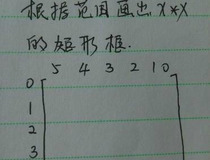 根据范围画出X*X
的矩形框.
5 4 3 2 1 0
0
1
2
3